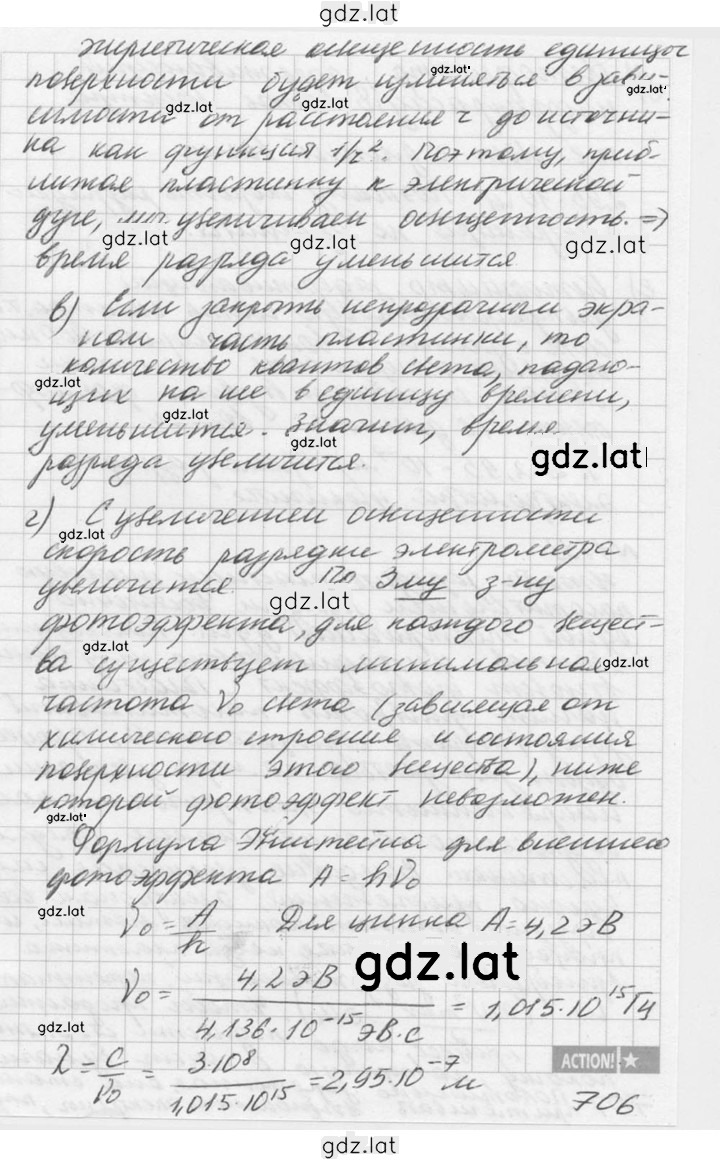 gdz.lat
энергетическая освещенность единицы
поверхности будет изменяться в зави-
gdz.lat
gdz.lat
gdz.lat
gdz.lat
симости от расстояния r до источни-
ка как функция 1/r². Поэтому, приб-
лижая пластинку к электрической
дуге, увеличиваем освещенность. =>
gdz.lat
gdz.lat
gdz.lat
время разряда уменьшится
в) Если закрыть непрозрачным экра-
ном часть пластинки, то
количество квантов света, падаю-
gdz.lat
щих на нее в единицу времени,
gdz.lat
уменьшится. Значит, время
разряда увеличится.
gdz.lat
г) С увеличением освещенности
gdz.lat
скорость разрядки электрометра
увеличится. По 3му з-ну
gdz.lat
фотоэффекта, для каждого вещест-
gdz.lat
ва существует минимальная
gdz.lat
частота ν₀ света (зависящая от
химического строения и состояния
поверхности этого вещества), ниже
которой фотоэффект невозможен.
gdz.lat
Формула Эйнштейна для внешнего
фотоэффекта A = hν₀
gdz.lat
ν₀ = A/h Для цинка A = 4,2 эВ
gdz.lat
ν₀ = 4,2 эВ / 4,136·10⁻¹⁵ эВ·с = 1,015·10¹⁵ Гц
gdz.lat
λ = c/ν₀ = 3·10⁸ / 1,015·10¹⁵ = 2,95·10⁻⁷ м
ACTION!
706
gdz.lat